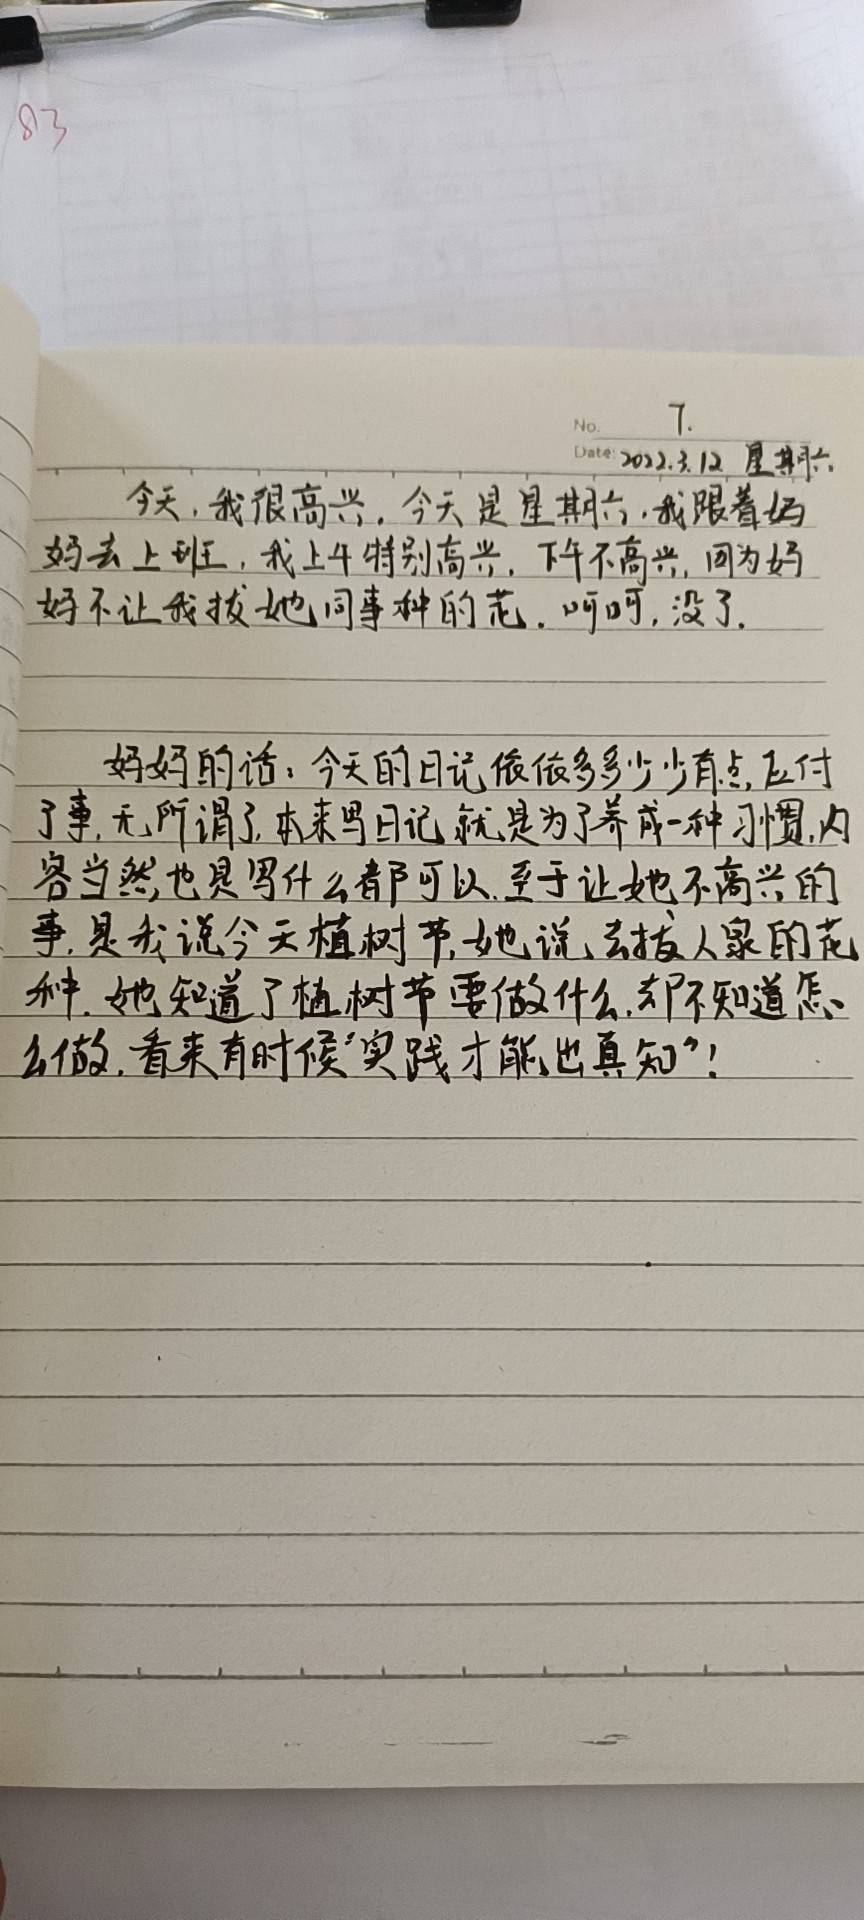 83
No. 7.
Date: 2022.3.12 星期六
今天,我很高兴,今天是星期六,我跟着妈
妈去上班,我上午特别高兴,下午不高兴,因为妈
妈不让我拔她同事种的花.呵呵,没了.
妈妈的话:今天的日记依依多多少少有点,应付
了事,无所谓了,本来写日记就是为了养成一种习惯,内
容当然也是写什么都可以.至于让她不高兴的
事,是我说今天植树节,她说去拔人家的花
种.她知道了植树节要做什么,却不知道怎
么做.看来有时候"实践才能出真知"!